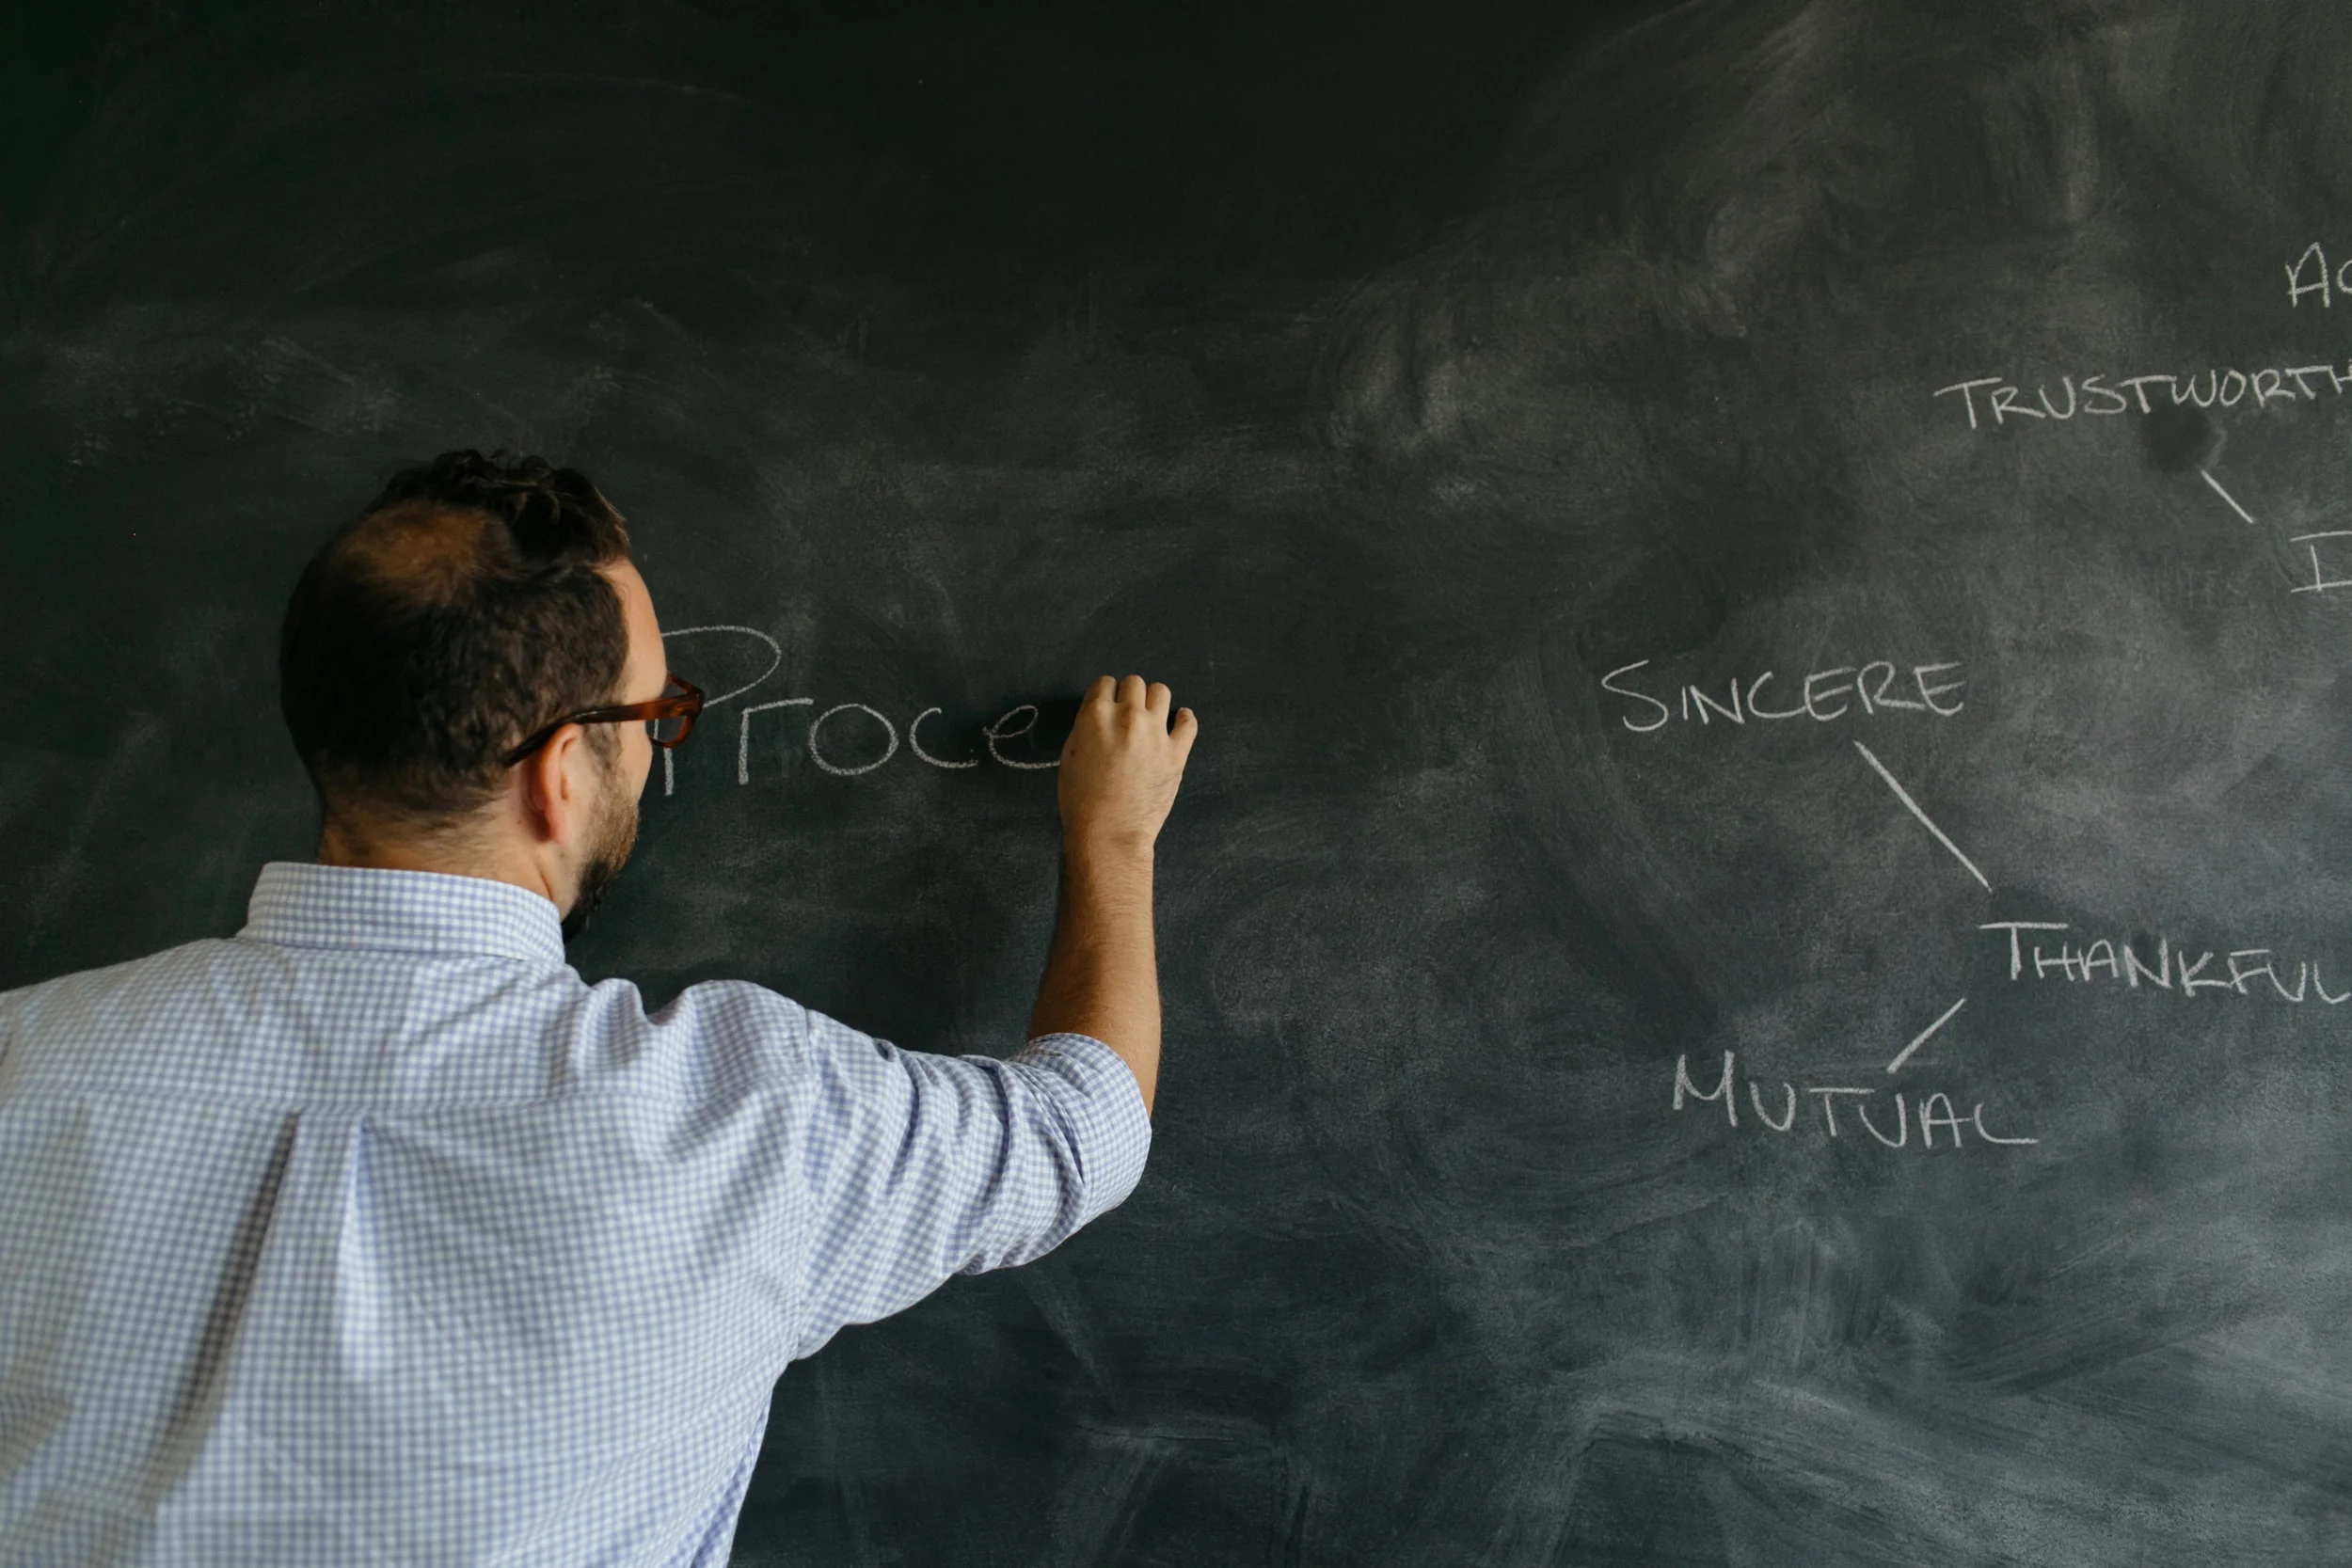 AC
TRUSTWORTH
Proce
SINCERE
THANKFUL
MUTUAL